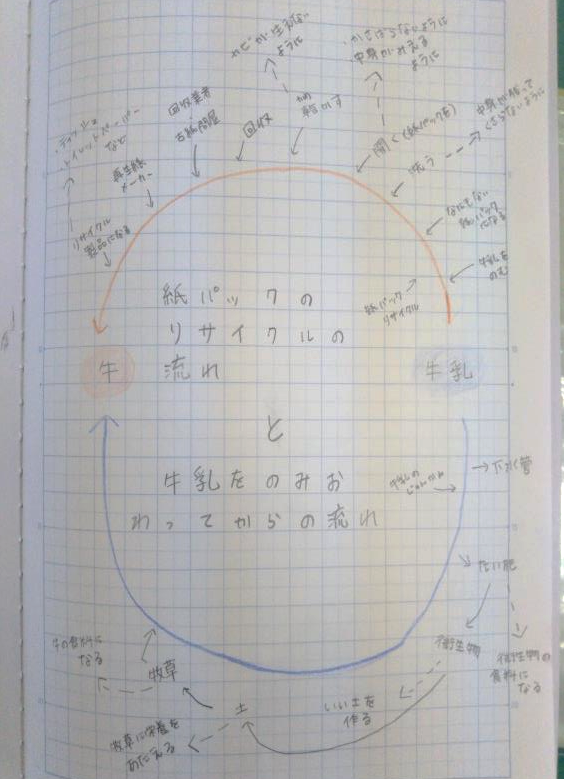 カビが生えない
ように
かさばらないように
中身がみえる
ように
乾かす
回収
回収業者
古紙問屋
再生紙
メーカー
ティッシュ
トイレットペーパー
など
リサイクル
製品になる
開く(紙パックを)
洗う
中身が残って
くさらないように
紙パック
になる
牛乳を
のむ
紙パック
リサイクル
紙パックの
リサイクルの
流れ
牛
牛乳
と
牛乳をのみお
わってからの流れ
牛乳の
じゅんかん
下水管
たい肥
微生物
微生物の
食料に
なる
いい土を
作る
土
牧草に栄養を
あたえる
牧草
牛の食料に
なる